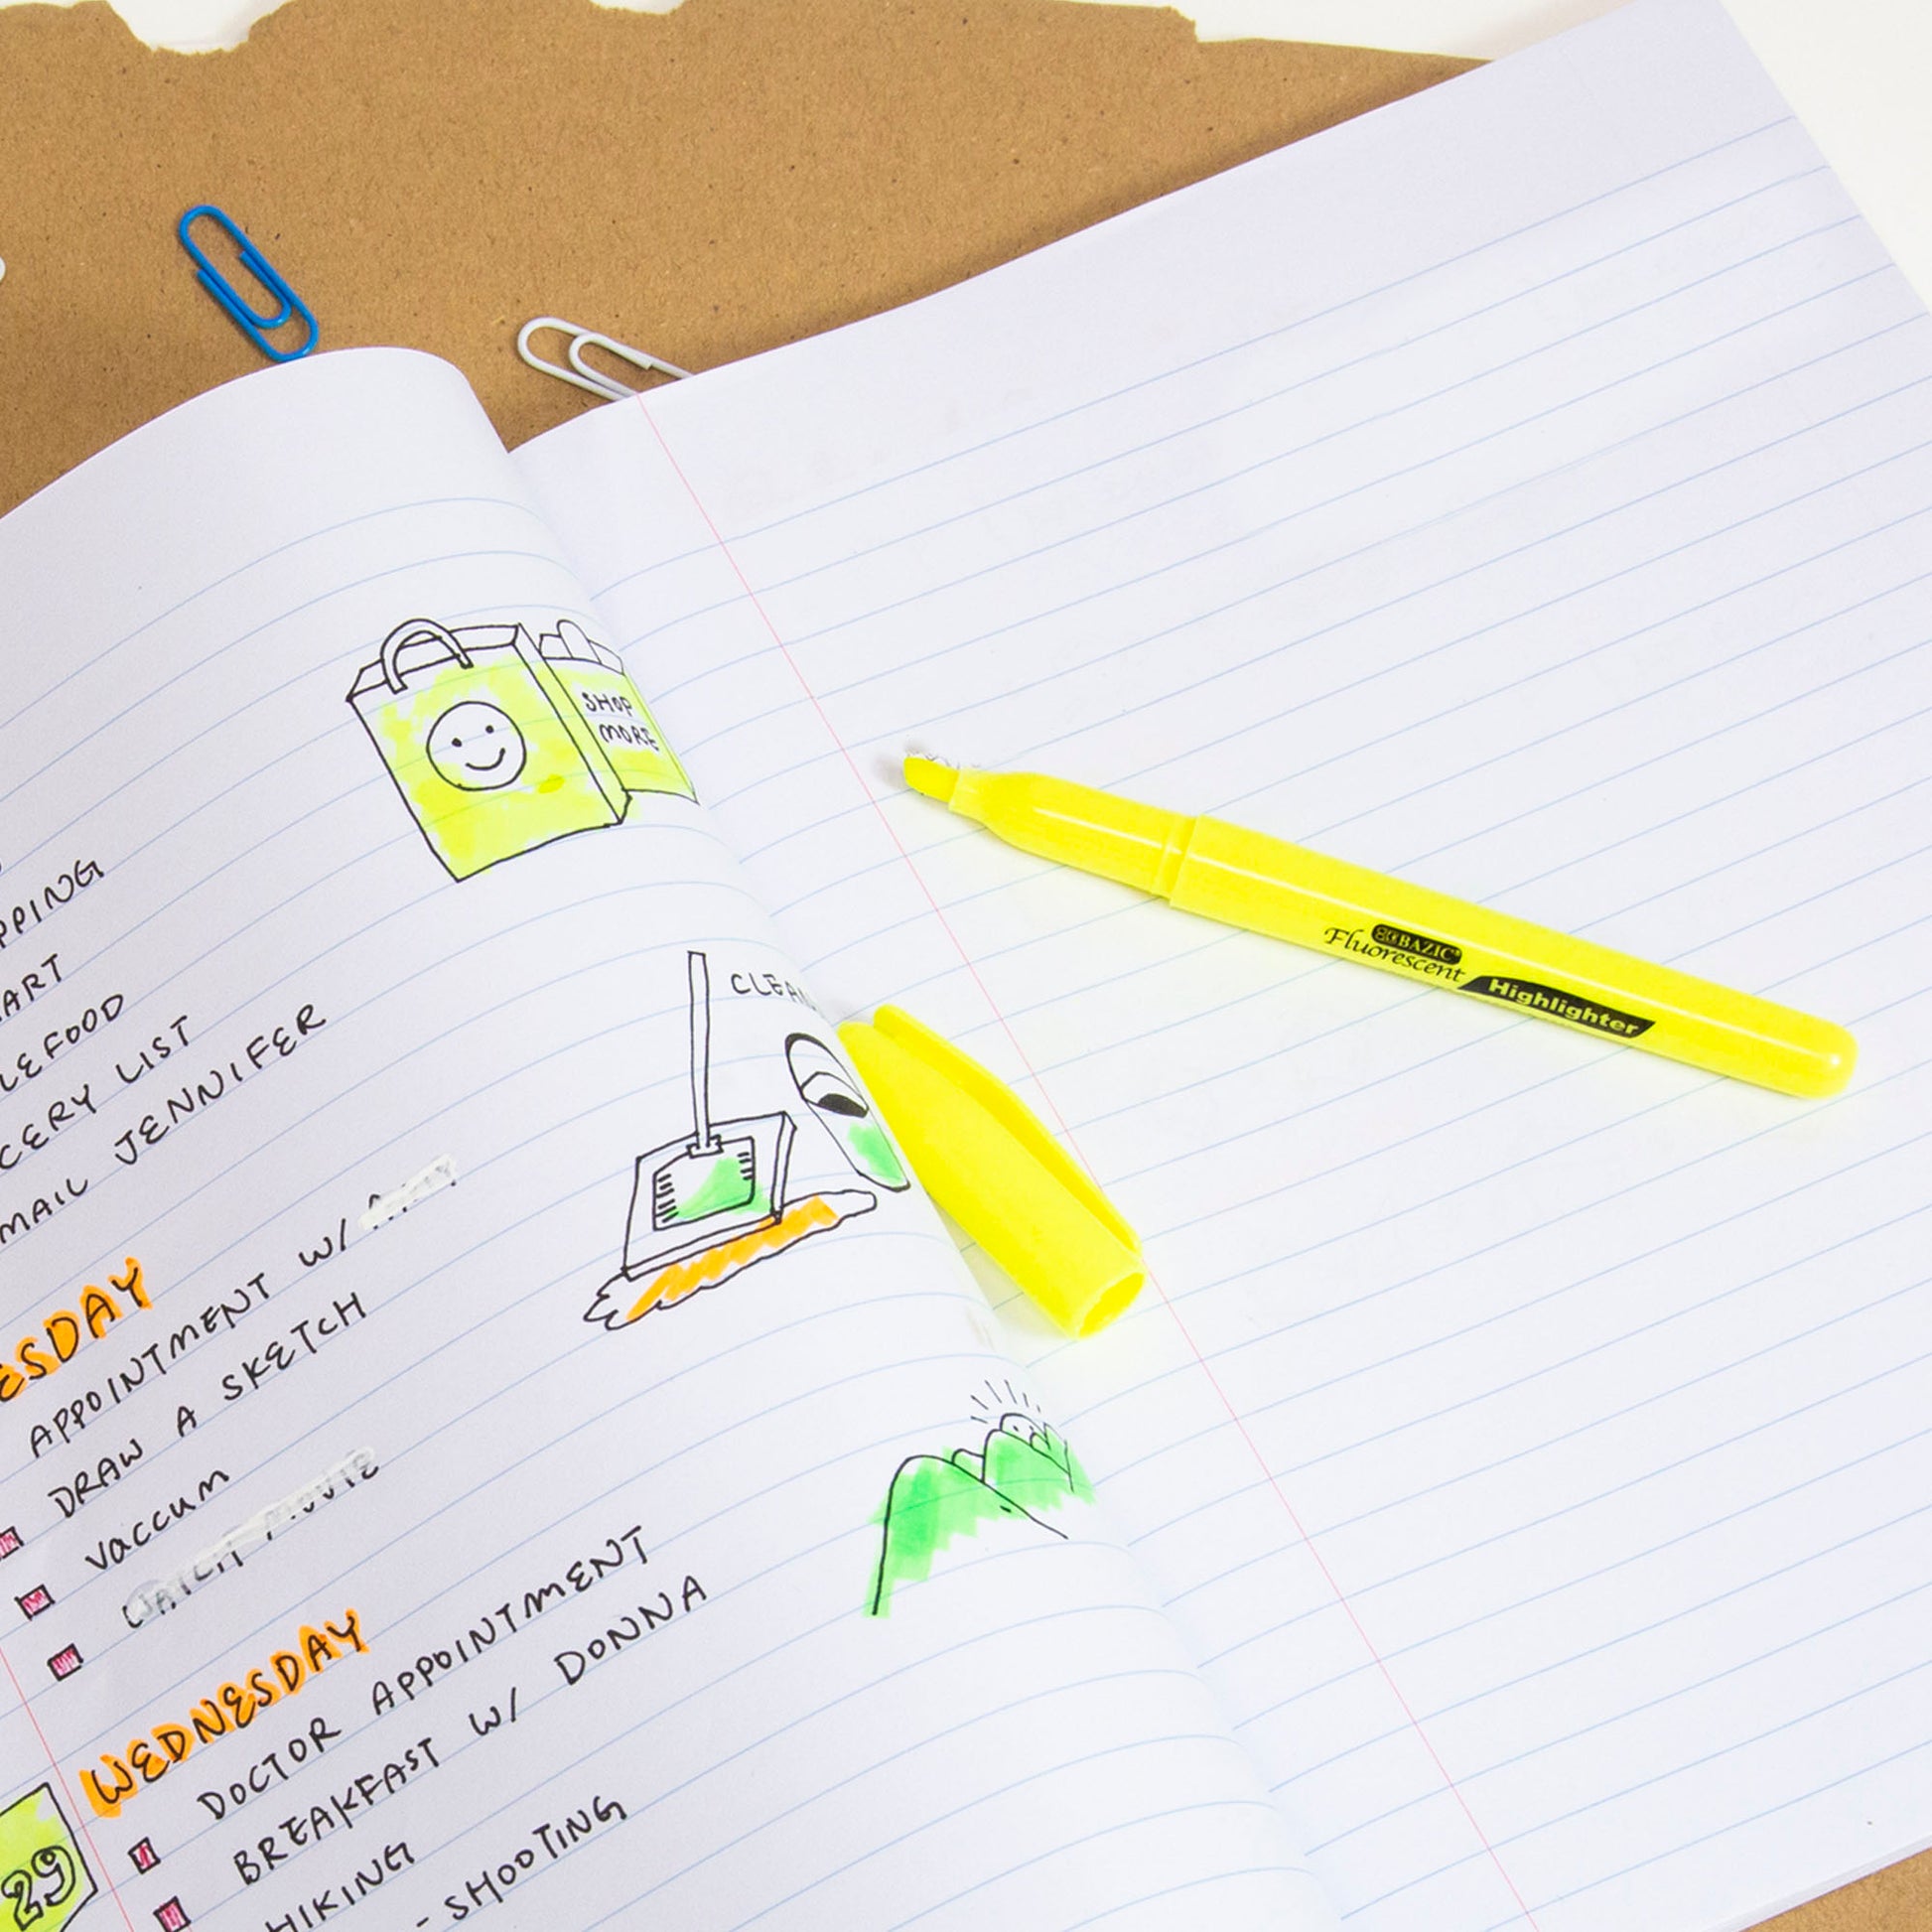 PPING
ART
LEFOOD
CERY LIST
MAIL JENNIFER
ESDAY
APPOINTMENT W/
DRAW A SKETCH
VACCUM
WATCH MOVIE
WEDNESDAY
DOCTOR APPOINTMENT
BREAKFAST W/ DONNA
HIKING
- SHOOTING
29
SHOP
MORE
CLEAN
BAZIC
Fluorescent
Highlighter